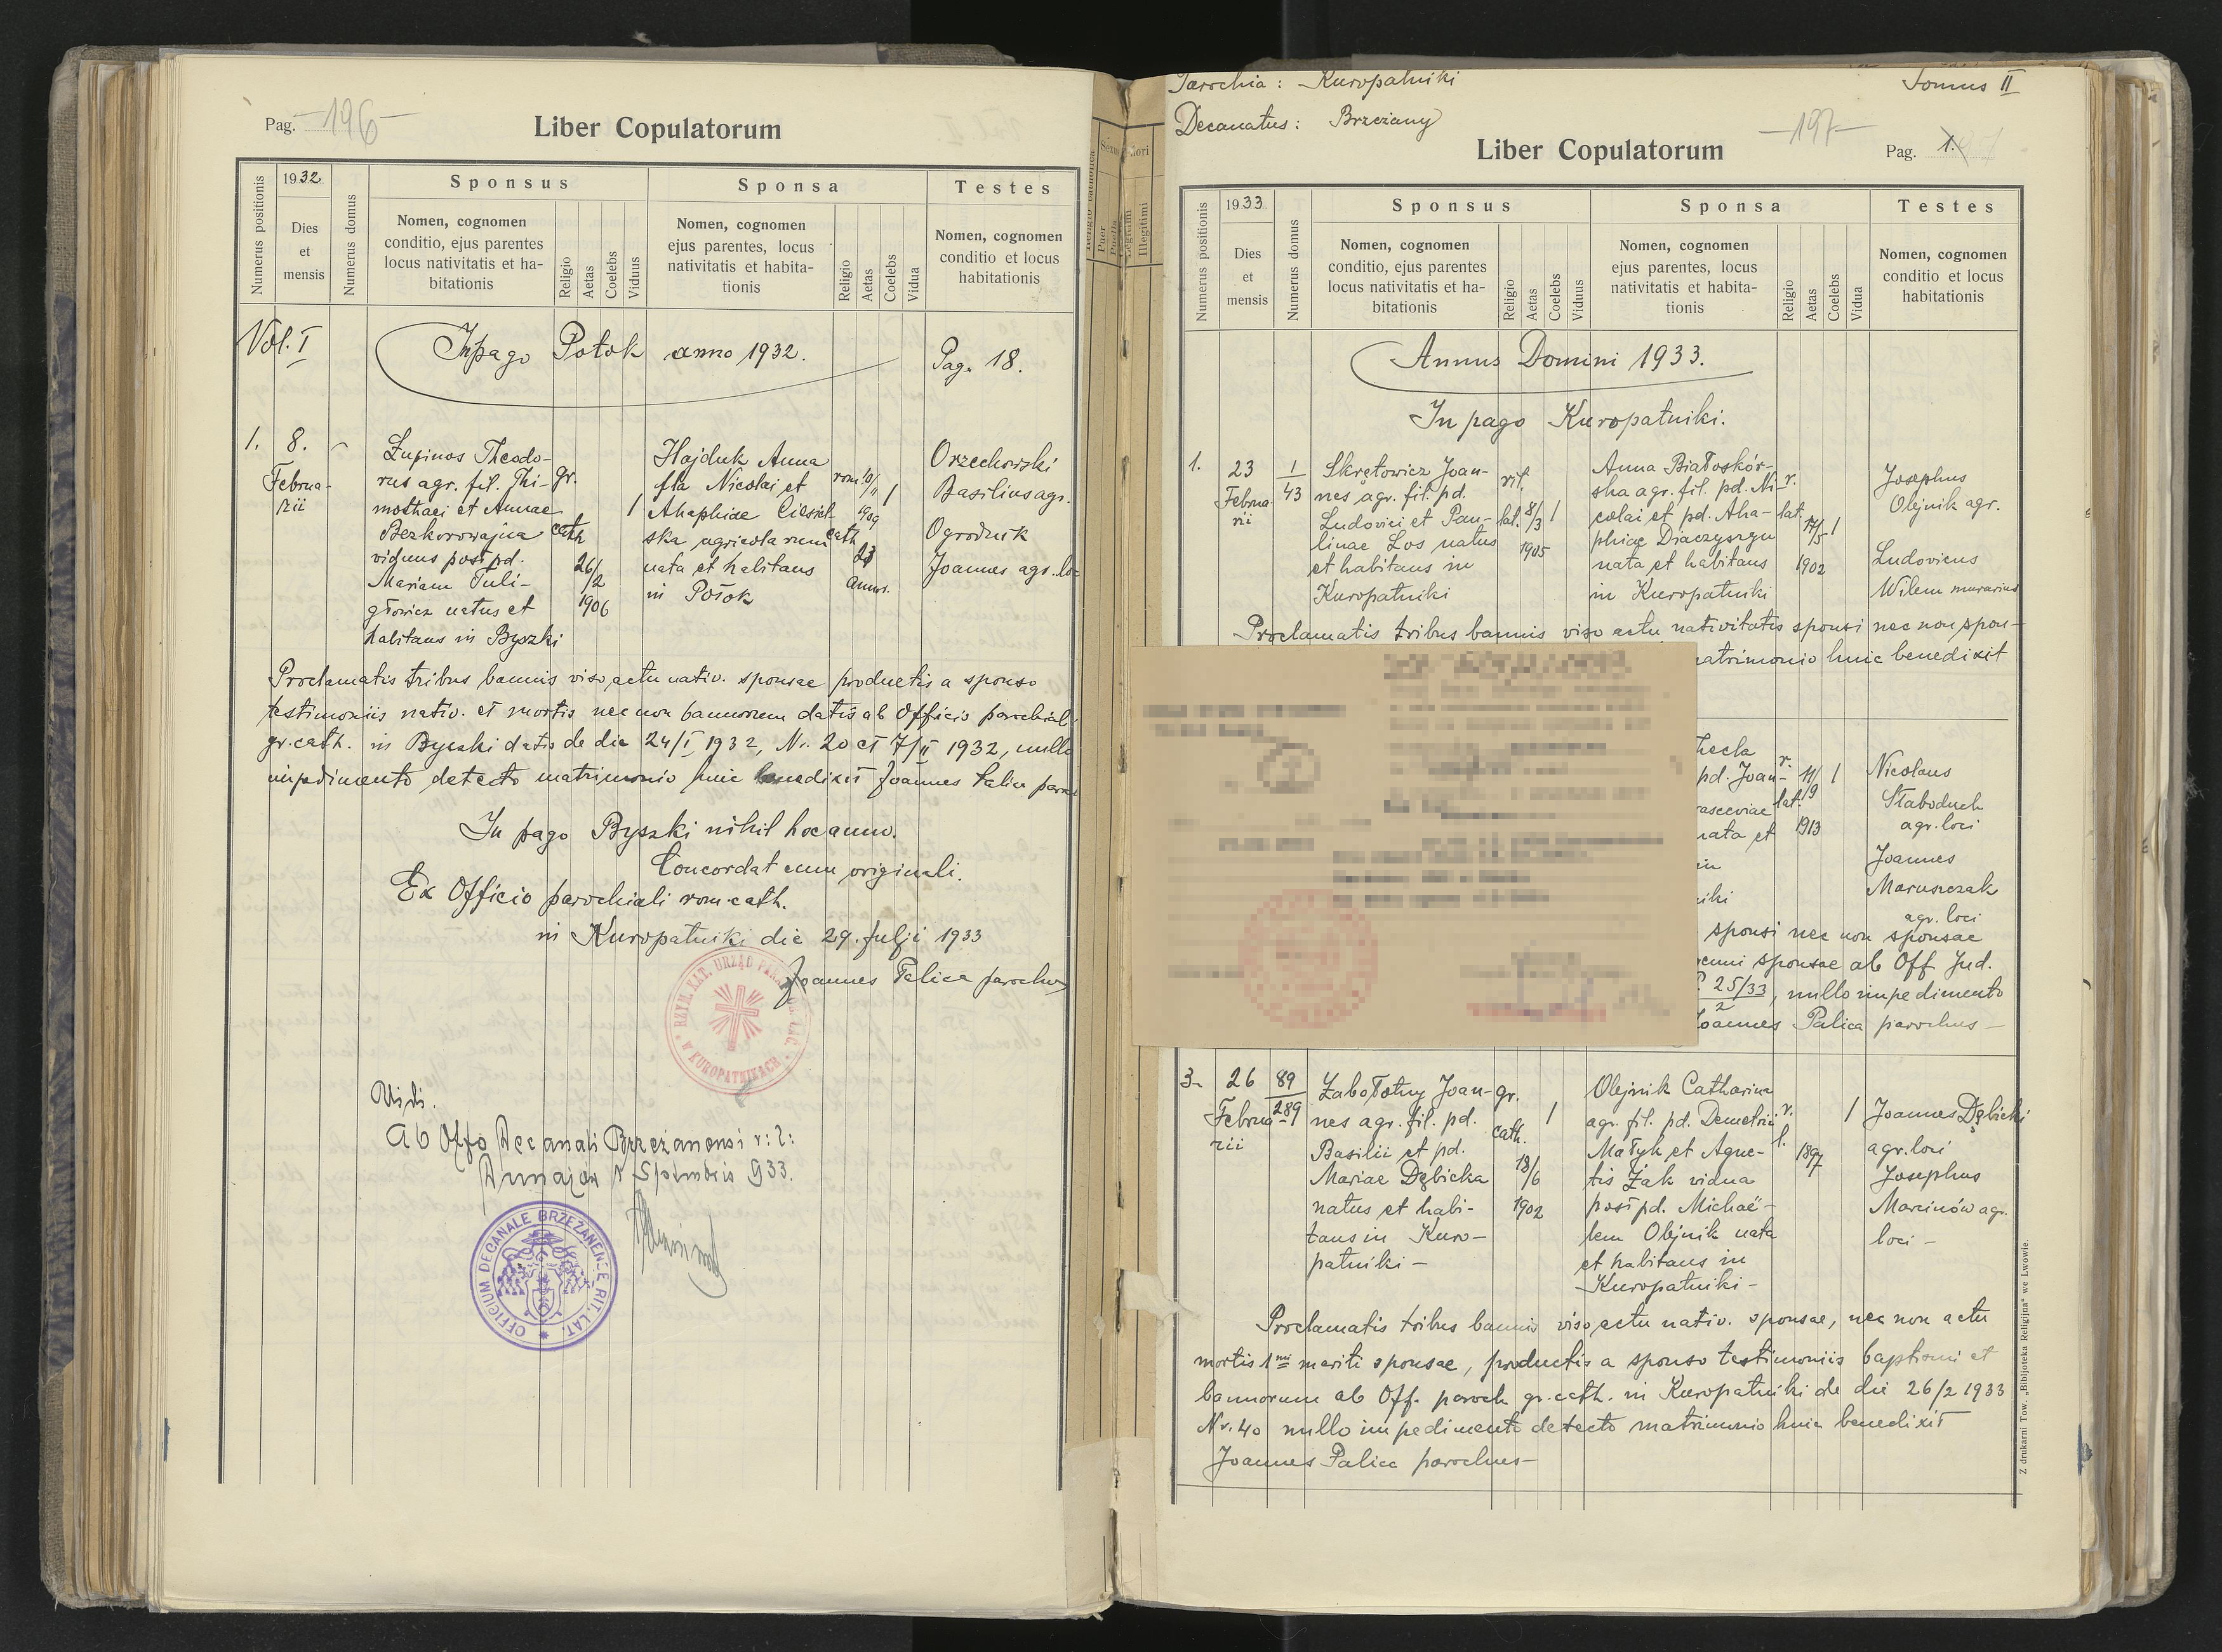 Pag. 196
Liber Copulatorum
Numerus positionis
1932
Dies
et
mensis
Numerus domus
Sponsus
Nomen, cognomen
conditio, ejus parentes
locus nativitatis et ha-
bitationis
Religio
Aetas
Coelebs
Viduus
Sponsa
Nomen, cognomen
ejus parentes, locus
nativitatis et habita-
tionis
Religio
Aetas
Coelebs
Vidua
Testes
Nomen, cognomen
conditio et locus
habitationis
Vol. I
In pago Potok anno 1932.
Pag. 18.
1.
8.
Februa-
rii
Łupinos Theodo-
rus agr. fil. Thi-
mothaei et Annae
Bezkorowajna
viduus post pd.
Mariam Tuli-
głowicz natus et
habitans in Byszki
gr.
cath
26/2
1906
1
Hajduk Anna
fla Nicolai et
Ahaphiae Ciesiel-
ska agricolarum
nata et habitans
in Potok
rom
cath
10/11
1909
23
annor.
1
Orzechowski
Basilius agr.
Ogrodnik
Joannes agr. loc
Proclamatis tribus bannis viso actu nativ. sponsae productis a sponso
testimoniis nativ. et mortis nec non bannorum datis ab Officio parochiali
gr. cath. in Byszki datis de die 24/I 1932, Nr. 20 et 7/II 1932, nullo
impedimento detecto matrimonio huic benedixit Joannes Palica paro
In pago Byszki nihil hoc anno.
Concordat cum originali.
Ex Officio parochiali rom-cath.
in Kuropatniki die 29. Julji 1933
Joannes Palica parochus
RZYM. KAT. URZĄD PARAF. OBRZ. ŁAC. W KUROPATNIKACH
Vidi.
Ab Offo Decanali Brzeżanensi r: l:
933.
OFFICIUM DECANALE BRZEŻANENSE RIT. LAT.
Parochia: Kuropatniki
Tomus II
Decanatus: Brzeżany
197
Liber Copulatorum
Pag. 1.
Numerus positionis
1933
Dies
et
mensis
Numerus domus
Sponsus
Nomen, cognomen
conditio, ejus parentes
locus nativitatis et ha-
bitationis
Religio
Aetas
Coelebs
Viduus
Sponsa
Nomen, cognomen
ejus parentes, locus
nativitatis et habita-
tionis
Religio
Aetas
Coelebs
Vidua
Testes
Nomen, cognomen
conditio et locus
habitationis
Annus Domini 1933.
In pago Kuropatniki.
1.
23
Februa-
rii
1
43
Skrętowicz Joan-
nes agr. fil. pd.
Ludovici et Pau-
linae Los natus
et habitans in
Kuropatniki
rit.
lat.
8/3
1905
1
Anna Białoskór-
ska agr. fil. pd. Ni-
colai et pd. Aha-
phiae Diaczyszyn
nata et habitans
in Kuropatniki
r.
lat.
17/5
1902
1
Josephus
Olejnik agr.
Ludovicus
Wilem murarius
Proclamatis tribus bannis viso actu nativitatis sponsi nec non spon-
matrimonio huic benedixit
Thecla
pd. Joan-
nata et
in
niki
r.
lat.
11/9
1913
1
Nicolaus
Słaboduch
agr. loci
Joannes
Maruszczak
agr. loci
sponsi nec non sponsae
sponsae ab Off. Jud.
25/33, nullo impedimento
2
Joannes Palica parochus
3.
26
Februa-
rii
89
289
Zabołotny Joan-
nes agr. fil. pd.
Basilii et pd.
Mariae Dębicka
natus et habi-
tans in Kuro-
patniki
gr.
cath.
18/6
1902
1
Olejnik Catharina
agr. fil. pd. Demetrii
Małyk et Agne-
tis Żak vidua
post pd. Michaë-
lem Olejnik nata
et habitans in
Kuropatniki
r.
l.
1897
1
Joannes Dębicki
agr. loci
Josephus
Marcinów agr.
loci
Proclamatis tribus bannis viso actu nativ. sponsae, nec non actu
mortis 1mi mariti sponsae, productis a sponso testimoniis baptismi et
bannorum ab Off. paroch. gr. cath. in Kuropatniki de die 26/2 1933
Nr. 40 nullo impedimento detecto matrimonio huic benedixit
Joannes Palica parochus
Z drukarni Tow. „Bibljoteka Religijna" we Lwowie.